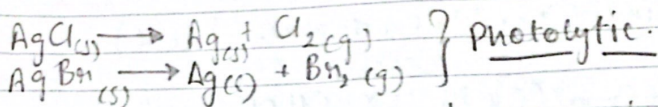 AgCl(s) → Ag(s) + Cl2(g)
AgBr(s) → Ag(s) + Br2(g) } Photolytic.